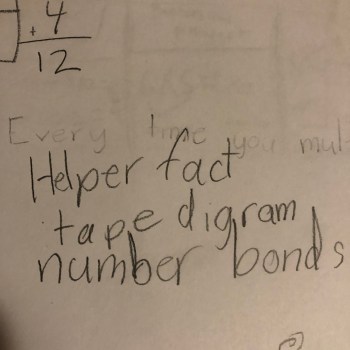 + 4
12
Every time you mult
Helper fact
tape digram
number bonds